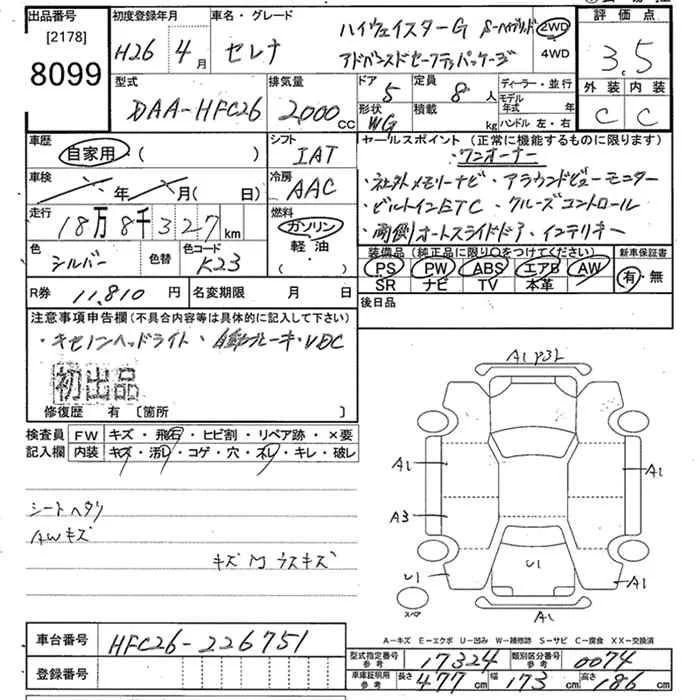 出品番号 初度登録年月 車名・グレード 評価点
[2178] H26年4月 セレナ ハイウェイスターG S-ハイブリッド 2WD
8099 アドバンスドセーフティパッケージ 4WD 3.5
型式 排気量 ドア 定員 ディーラー・並行 外装 内装
DAA-HFC26 2000cc 5 8人 モデル年式 年 C C
形状 積載 ハンドル 左・右
WG kg
車歴 シフト セールスポイント (正常に機能するものに限ります)
自家用・( ) IAT ・ワンオーナー
車検 冷房 ・社外メモリーナビ・アラウンドビューモニター
年 月(日) AAC ・ビルトインETC・クルーズコントロール
走行 燃料 ・両側オートスライドドア・インテリキー
18万8千327km ガソリン
軽油
・( )
色 色替 色コード 装備品 (純正品に限り○をつけてください) 新車保証書
シルバー K23 PS PW ABS エアB AW 有・無
SR ナビ TV 本革
R券 11,810円 名変期限 月 日 後日品
注意事項申告欄 (不具合内容等は具体的に記入して下さい)
・キセノンヘッドライト・自動ブレーキ・VDC
初出品
修復歴 有 〔箇所 〕
検査員 FW キズ・飛石・ヒビ割・リペア跡・×要
記入欄 内装 キズ・汚レ・コゲ・穴・ネレ・キレ・破レ
シートヘタリ
AWキズ
キズ 凹 ウスキズ
A1 P3L
A1 A1
A3
U1 U1 A1
スペア A1
A-キズ E-エクボ U-凹み W-補修跡 S-サビ C-腐食 XX-交換済
車台番号 HFC26-226751
型式指定番号 参考 17324 類別区分番号 参考 0074
登録番号 車庫証明用 参考 長さ 477cm 幅 173cm 高さ 186cm